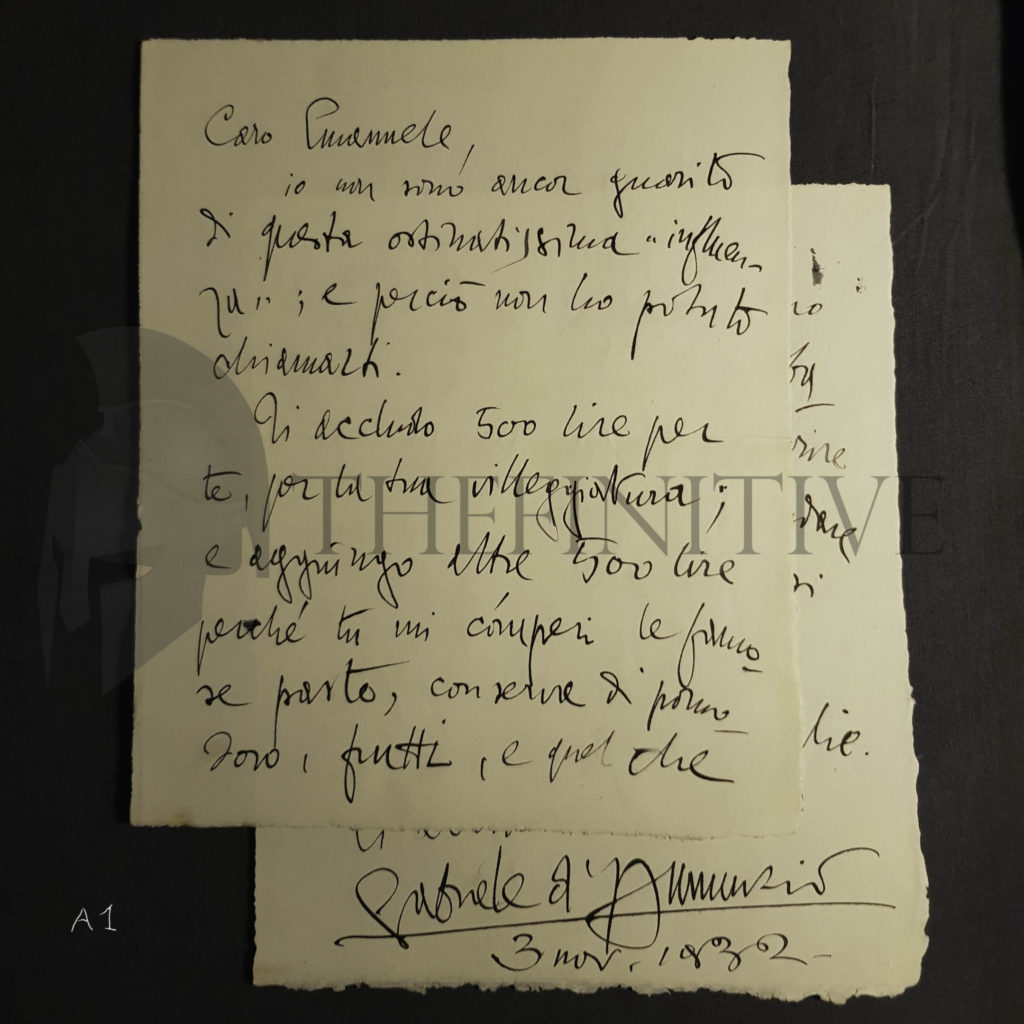 Caro Emanuele,
io non sono ancor guarito
di questa ostinatissima "influen-
za"; e perciò non ho potuto
chiamarti.
Ti accludo 500 lire per
te, per la tua villeggiatura;
e aggiungo altre 500 lire
perché tu mi cómperi le famo-
se paste, conserve di pomo-
doro, frutti, e quel che
lie.
Gabriele d'Annunzio
3 nov. 1932 -
THEFINITIVE
A1